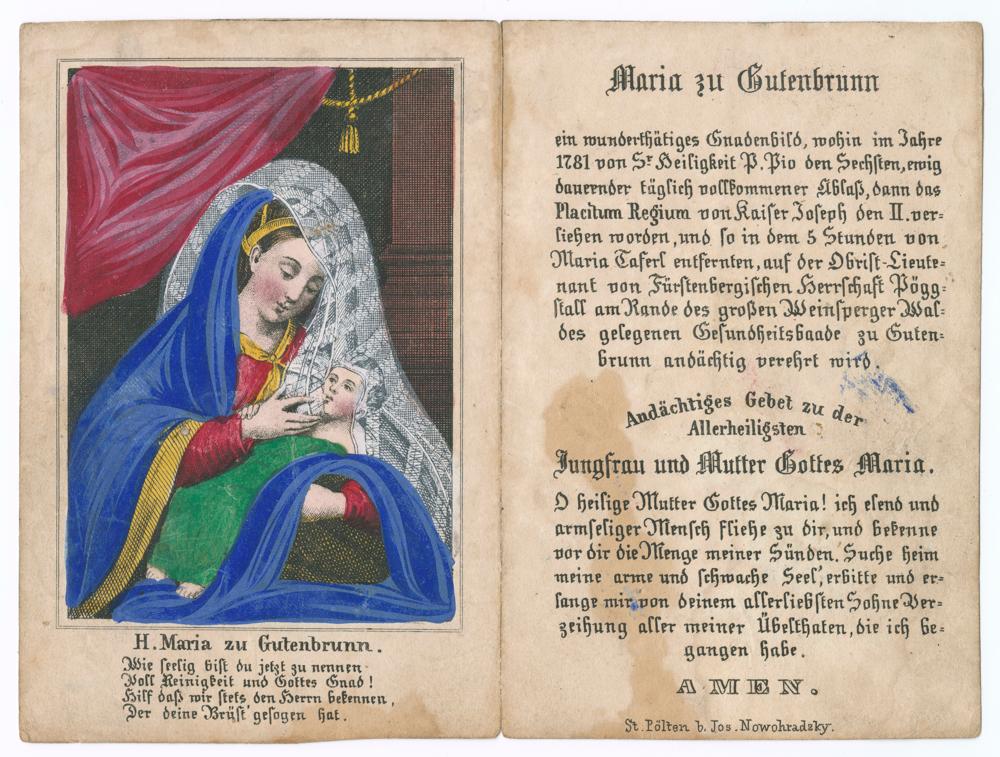 H. Maria zu Gutenbrunn.
Wie seelig bist du jetzt zu nennen
Voll Reinigkeit und Gottes Gnad!
Hilf daß wir stets den Herrn bekennen,
Der deine Brüst' gesogen hat.
Maria zu Gutenbrunn
ein wunderthätiges Gnadenbild, wohin im Jahre
1781 von Sr Heiligkeit P. Pio den Sechsten, ewig
dauernder täglich vollkommener Ablaß, dann das
Placitum Regium von Kaiser Joseph den II. ver-
liehen worden, und so in dem 5 Stunden von
Maria Taferl entfernten, auf der Obrist-Lieute-
nant von Fürstenbergischen Herrschaft Pögg-
stall am Rande des großen Weinsperger Wal-
des gelegenen Gesundheitsbaade zu Guten-
brunn andächtig verehrt wird.
Andächtiges Gebet zu der
Allerheiligsten
Jungfrau und Mutter Gottes Maria.
O heilige Mutter Gottes Maria! ich elend und
armseliger Mensch fliehe zu dir, und bekenne
vor dir die Menge meiner Sünden. Suche heim
meine arme und schwache Seel', erbitte und er-
lange mir von deinem allerliebsten Sohne Ver-
zeihung aller meiner Übelthaten, die ich be-
gangen habe.
AMEN.
St. Pölten b. Jos. Nowohradzky.